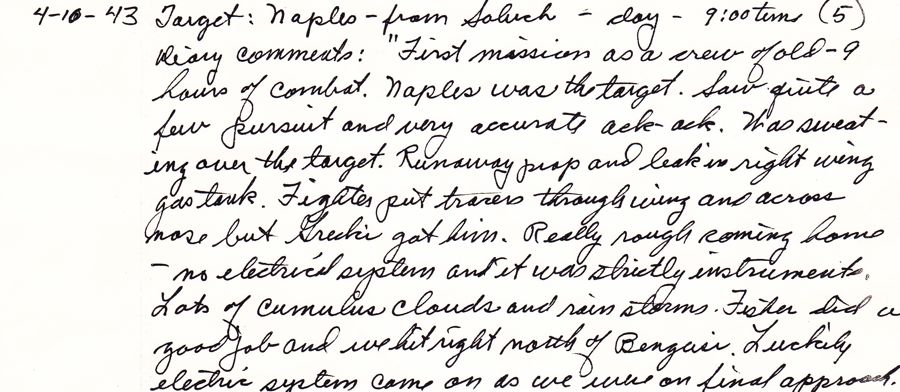 4-10-43 Target: Naples - from Soluch - day - 9:00 time (5)
Diary comments: "First mission as a crew of old - 9
hours of combat. Naples was the target. Saw quite a
few pursuit and very accurate ack-ack. Was sweat-
ing over the target. Runaway prop and leak in right wing
gas tank. Fighter put tracers through wing and across
nose but Grecki got him. Really rough coming home
- no electrical system and it was strictly instruments.
Lots of cumulus clouds and rain storms. Fisher did a
good job and we hit right north of Bengasi. Luckily
electric system came on as we were on final approach.